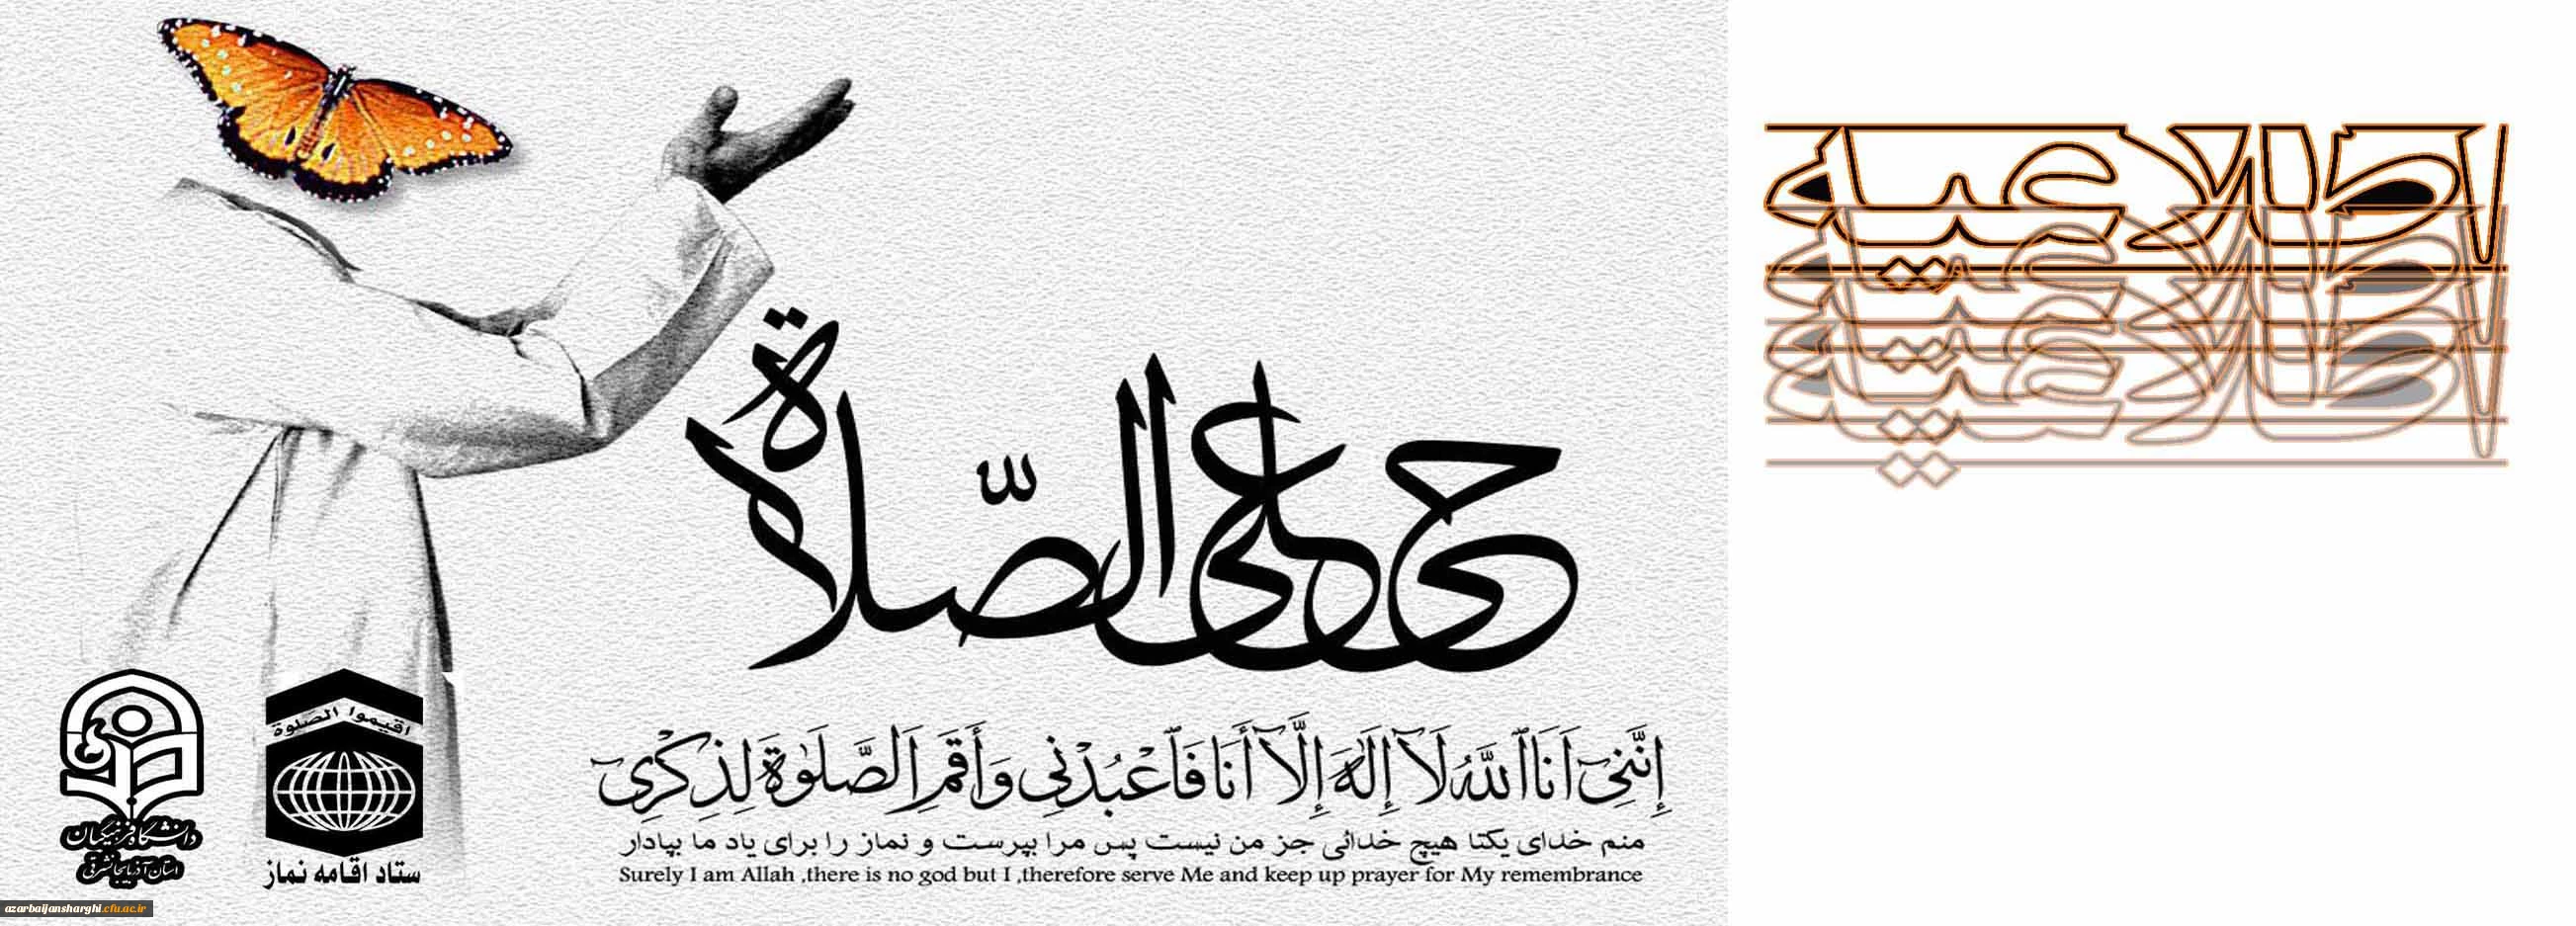 اطلاعیه
حی علی الصّلاة
إِنَّنِيٓ أَنَا ٱللَّهُ لَآ إِلَٰهَ إِلَّآ أَنَا فَٱعْبُدْنِي وَأَقِمِ ٱلصَّلَوٰةَ لِذِكْرِيٓ
منم خدای یکتا هیچ خدائی جز من نیست پس مرا بپرست و نماز را برای یاد ما بپادار
Surely I am Allah ,there is no god but I ,therefore serve Me and keep up prayer for My remembrance
اقیموا الصلوة
ستاد اقامه نماز
دانشگاه فرهنگیان
استان آذربایجانشرقی
azarbaijansharghi.cfu.ac.ir